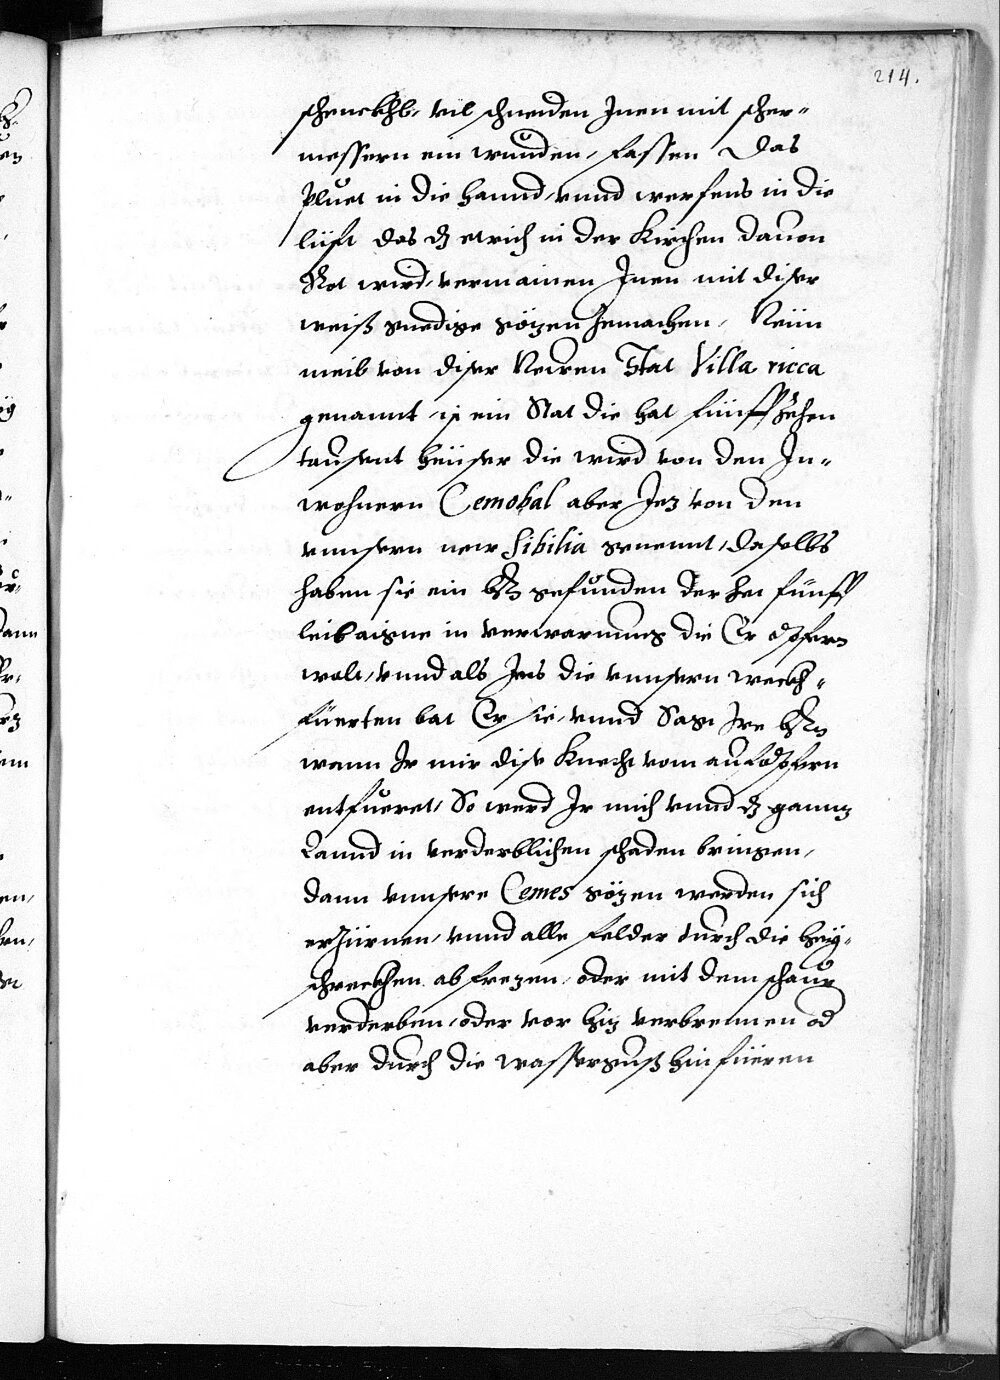 214.
schenckhl, vil schneiden Jnen mit scher-
messern ein wunden, fassen das
Pluet in die hannd, vnnd werfens in die
lüfft das dz etrich in der Kirchen dauon
Rot wird, vermainen Jnen mit diser
weiß gnedige gözen Zemachen, Neün
meil von diser Newen Stat Villa ricca
genannt ist ein Stat die hat fünffzehen
tausent heüser die wird von den Jn-
wohnern Cemobal aber Jez von den
vnnsern new Sibilia genennt, daselbs
haben sie ein gefunden der het fünff
leibaigne in verwarnung die Er opfern
wolt, vnnd als Jms die vnnsern weckh-
füerten bat Er sie, vnnd Sagt Jre
wann Jr mir dise Knecht vom aufopfern
entfueret, So werd Jr mich vnnd dz gannz
Lannd in verderblichen schaden bringen,
dann vnnsere Cemes gözen werden sich
erzürnen, vnnd alle felder durch die hey-
schreckhen abfrezen, oder mit dem schaur
verderben, oder vor hiz verbrennen od
aber durch die wasserguß hinfüeren